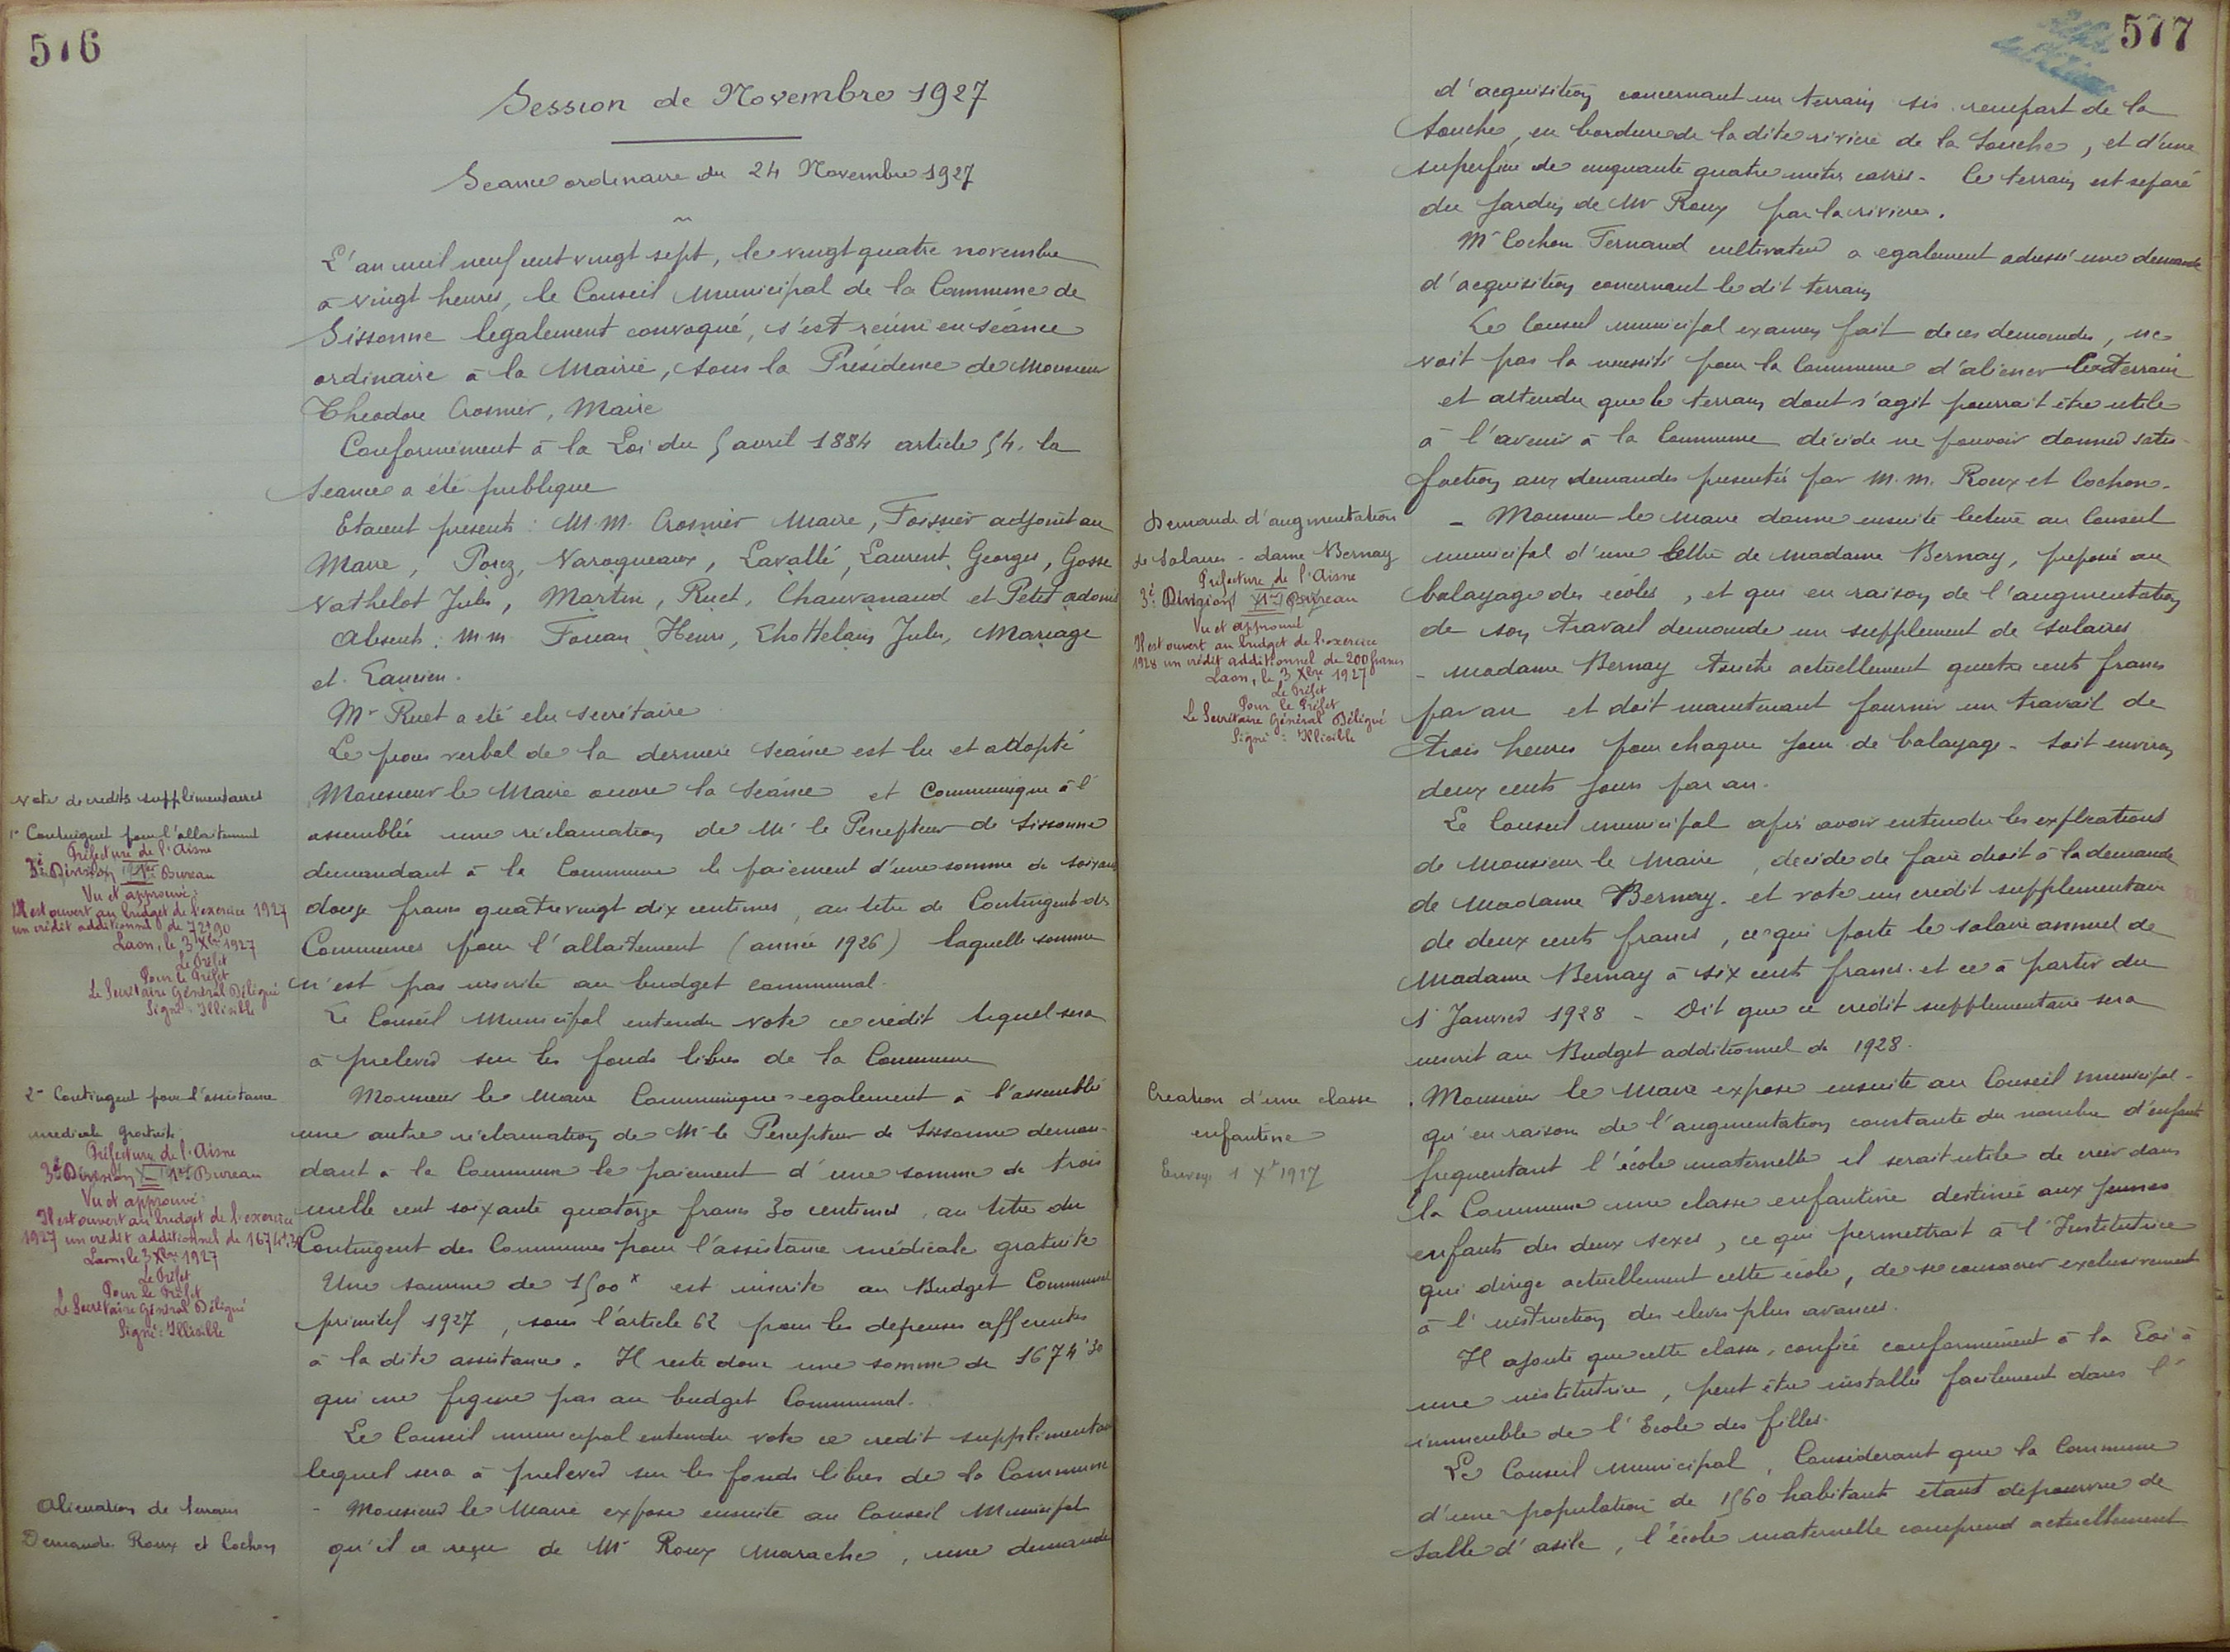 576
Session de Novembre 1927
Seance ordinaire du 24 Novembre 1927
L'an mil neuf cent vingt sept, le vingt quatre novembre
à vingt heures, le Conseil Municipal de la Commune de
Sissonne légalement convoqué, s'est réuni en séance
ordinaire à la Mairie, sous la Présidence de Monsieur
Theodore Crosnier, Maire
Conformement à la Loi du 5 avril 1884 article 54. la
seance a été publique
Etaient presents : M.M. Crosnier Maire, Foissier adjoint au
Maire, Posez, Varoqueaux, Lavallé, Laurent Georges, Gosse
Vathelot Jules, Martin, Ruet, Chauvanaud et Petit adonis
Absents : M.M. Fouan Henri, Chottelain Jules, Mariage
et Lancien.
Mr Ruet a été elu secrétaire
Le proces verbal de la derniere séance est lu et adopté
Vote de credits supplementaires
Monsieur le Maire ouvre la séance et communique à l'
1° Contingent pour l'allaitement
assemblée une réclamation de Mr le Percepteur de Sissonne
Préfecture de l'Aisne
3è Division 1er Bureau
demandant à la Commune le paiement d'une somme de soixante
Vu et approuvé :
Il est ouvert au budget de l'exercice 1927
un crédit additionnel de 72f90
douze francs quatre vingt dix centimes, au titre de Contingent des
Laon, le 3 Xbre 1927
Le Préfet
Communes pour l'allaitement (année 1926) laquelle somme
Pour le Préfet
Le Secrétaire Général Délégué
n'est pas inscrite au budget communal.
Signé : Illisible
Le Conseil Municipal entendu vote ce crédit lequel sera
à prelever sur les fonds libres de la Commune
2° Contingent pour l'assistance
medicale gratuite
Monsieur le Maire Communique egalement à l'assemblée
une autre réclamation de Mr le Percepteur de Sissonne deman-
Préfecture de l'Aisne
3è Division 1er Bureau
dant à la Commune le paiement d'une somme de trois
Vu et approuvé :
mille cent soixante quatorze francs 30 centimes, au titre du
Il est ouvert au budget de l'exercice
1927 un crédit additionnel de 1674f,30
Contingent des Communes pour l'assistance médicale gratuite
Laon, le 3 Xbre 1927
Le Préfet
Une somme de 1500 x est inscrite au Budget Communal
Pour le Préfet
Le Secrétaire Général Délégué
primitif 1927, sous l'article 62 pour les depenses afferentes
Signé : Illisible
à la dite assistance. Il reste donc une somme de 1674f30
qui ne figure pas au budget Communal.
Le Conseil municipal entendu vote ce credit supplémentaire
lequel sera à prelever sur les fonds libres de la Commune
Alienation de terrain
Demande Roux et Cochon
- Monsieur le Maire expose ensuite au Conseil Municipal
qu'il a reçu de Mr Roux Marache, une demande
577
d'acquisition concernant un terrain sis rempart de la
Souche, en bordure de la dite riviere de la Souche, et d'une
superficie de cinquante quatre metres carrés - Ce terrain est separé
du jardin de Mr Roux par la riviere.
Mr Cochon Fernand cultivateur a egalement adressé une demande
d'acquisition concernant le dit terrain
Le Conseil municipal examen fait de ces demandes, ne
voit pas la necessité pour la Commune d'aliener le terrain
et attendu que le terrain dont s'agit pourrait être utile
à l'avenir à la Commune décide ne pouvoir donner satis-
faction aux demandes presentés par M.M. Roux et Cochon.
Demande d'augmentation
de Salaires - dame Bernay
- Monsieur le Maire donne ensuite lecture au Conseil
municipal d'une lettre de madame Bernay, preposé au
Préfecture de l'Aisne
3è Division 1er Bureau
balayage des écoles, et qui en raison de l'augmentation
Vu et approuvé
Il est ouvert au budget de l'exercice
1928 un crédit additionnel de 200 francs
de son travail demande un supplement de salaires
Laon, le 3 Xbre 1927
Le Préfet
- Madame Bernay touche actuellement quatre cents francs
Pour le Préfet
Le Secrétaire Général Délégué
Signé : Illisible
par an et doit maintenant fournir un travail de
trois heures pour chaque jour de balayage - soit environ
deux cents jours par an.
Le Conseil municipal après avoir entendu les explications
de Monsieur le Maire, decide de faire droit à la demande
de Madame Bernay. et vote un credit supplementaire
de deux cents francs, ce qui porte le salaire annuel de
Madame Bernay à six cents francs. et ce à partir du
1r Janvier 1928 - Dit que ce credit supplementaire sera
inscrit au Budget additionnel de 1928.
Creation d'une classe
enfantine
Envoyé 1 Xr 1927
. Monsieur le Maire expose ensuite au Conseil municipal -
qu'en raison de l'augmentation constante du nombre d'enfants
frequentant l'école maternelle il serait utile de créer dans
la Commune une classe enfantine destinée aux jeunes
enfants des deux sexes, ce qui permettrait à l'Institutrice
qui dirige actuellement cette école, de se consacrer exclusivement
à l'instruction des eleves plus avancés.
Il ajoute que cette classe, confiée conformément à la Loi à
une institutrice, peut être installée facilement dans l'
immeuble de l'Ecole des filles.
Le Conseil Municipal, Considerant que la Commune
d'une population de 1560 habitants etant dépourvue de
salle d'asile, l'école maternelle comprend actuellement